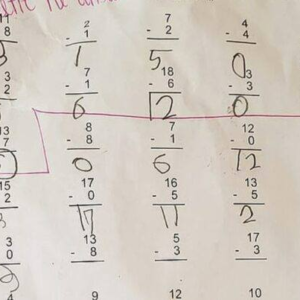 2 7 4
8 - 1 - 2 - 4
1 5 0
3 7 18 3
2 - 1 - 6 - 3
6 12 0
13 8 7 12
7 - 8 - 1 - 0
0 6 12
15 17 16 13
2 - 0 - 5 - 5
17 11 2
3 13 5 17
0 - 8 - 3 - 3
4 9 12 10